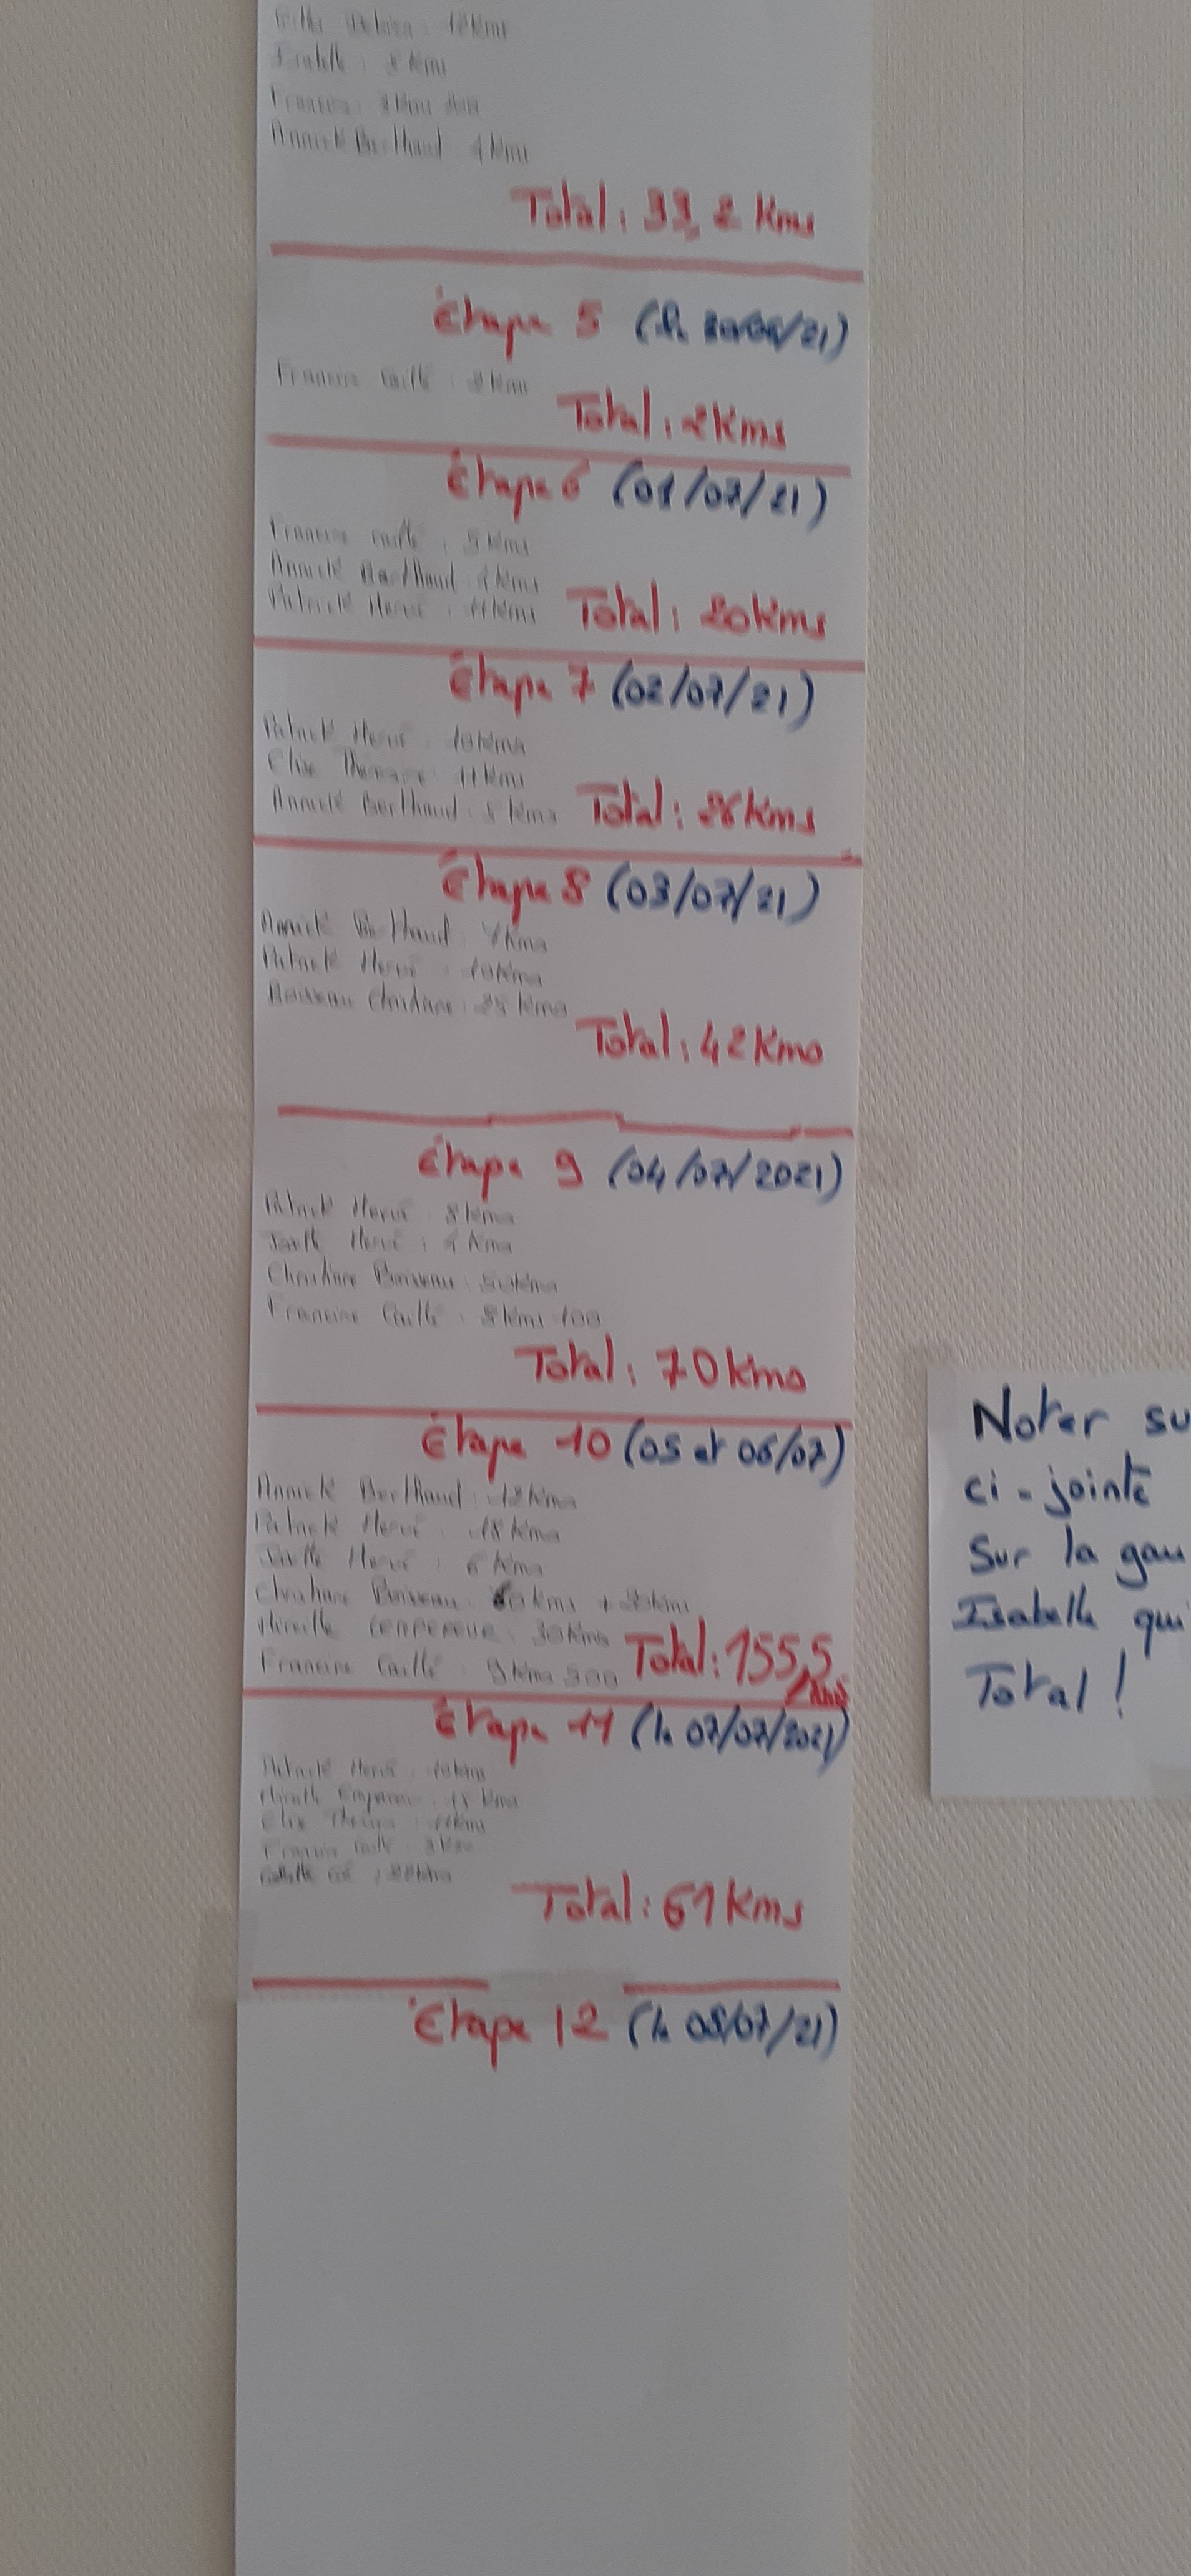 12 Kms
8 Kms
Francine
Annick Berthaud 4 Kms
Total : 33,2 Kms
Étape 5 (le 30/06/21)
Francine Caillé : 2 Kms
Total : 2 Kms
Étape 6 (01/07/21)
Francine Caillé : 5 Kms
Annick Berthaud 4 Kms
Patrick Hervé : 11 Kms
Total : 20 Kms
Étape 7 (02/07/21)
Patrick Hervé : 10 Kms
Elise 11 Kms
Annick Berthaud : 5 Kms
Total : 26 Kms
Étape 8 (03/07/21)
Annick Berthaud : 7 Kms
Patrick Hervé : 10 Kms
Boisseau Christiane : 25 Kms
Total : 42 Kms
Étape 9 (04/07/2021)
Patrick Hervé : 8 Kms
Joëlle Hervé : 4 Kms
Christiane Boisseau : 50 Kms
Francine Caillé : 8 Kms 100
Total : 70 Kms
Étape 10 (05 et 06/07)
Annick Berthaud : 12 Kms
Patrick Hervé : 18 Kms
Joëlle Hervé : 6 Kms
Christiane Boisseau : 60 Kms + 20 Kms
Mireille LEMPEREUR : 30 Kms
Francine Caillé : 9 Kms 500
Total : 155,5 Kms
Étape 11 (le 07/07/2021)
Patrick Hervé : 10 Kms
Mireille 15 Kms
11 Kms
Francine Caillé
: 20 Kms
Total : 61 Kms
Étape 12 (le 08/07/21)
Noter su
ci-jointe
Sur la gau
Isabelle qui
Total !